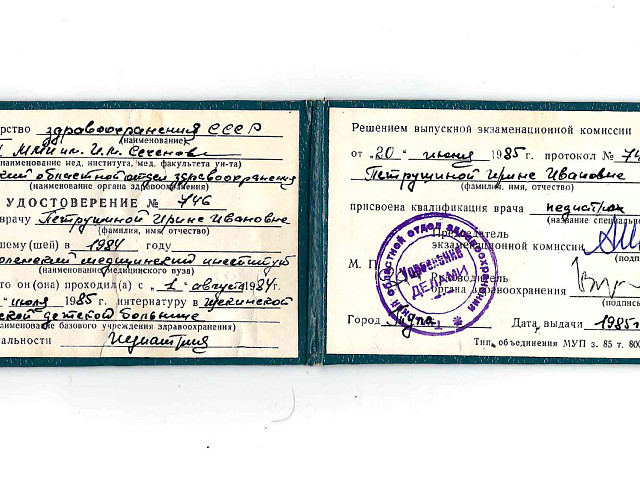 рство здравоохранения СССР
ММИ им. И.М. Сеченова
(наименование мед. института, мед. факультета ун-та)
кий областной отдел здравоохранения
(наименование органа здравоохранения)
УДОСТОВЕРЕНИЕ № 746
врачу Петрушиной Ирине Ивановне
(фамилия, имя, отчество)
шему(шей) в 1984 году
оленский медицинский институт
(наименование медицинского вуза)
то он (она) проходил(а) с „1" август 1984г.
" июля 1985г. интернатуру в Щекинской
ской детской больнице
наименование базового учреждения здравоохранения)
альности Педиатрия
Решением выпускной экзаменационной комиссии
от „20" июня 1985г. протокол № 74
Петрушиной Ирине Ивановне
(фамилия, имя, отчество)
присвоена квалификация врача педиатра
(название специаль
Председатель
экзаменационной комиссии
(подп
М. П.
Руководитель
Органа здравоохранения
(подпись
областной отдел здравоохранения
Управление
ДЕЛАМИ
Город Тула
Дата выдачи 1985г
Тип. объединения МУП з. 85 т. 800